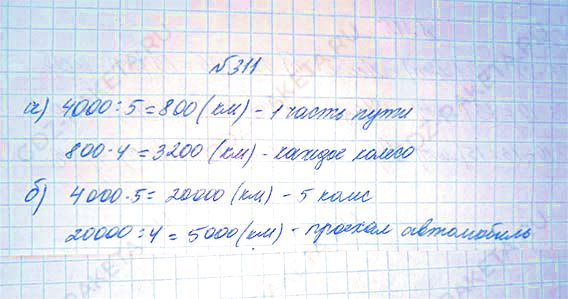 №311
а) 4000:5=800(км) - 1 часть пути
800·4=3200 (км) - каждое колесо
б) 4000·5= 20000 (км) - 5 колёс
20000:4=5000(км) - проехал автомобиль